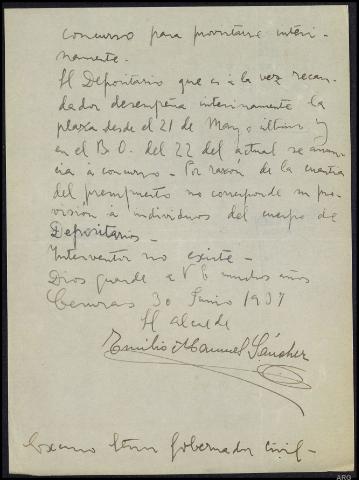 concurso para proveerse interi-
namente.
El Depositario que es á la vez recau-
dador desempeña interinamente la
plaza desde el 21 de Mayo último y
en el B.O. del 22 del actual se anun-
cia á concurso. - Por razon de la cuantia
del presupuesto no corresponde su pro-
visión á individuos del cuerpo de
Depositarios -
Interventor no existe -
Dios guarde a V E muchos años
30 Junio 1937
El Alcalde
Emilio Manuel Sánchez
Excmo Señor Gobernador Civil -
ARG